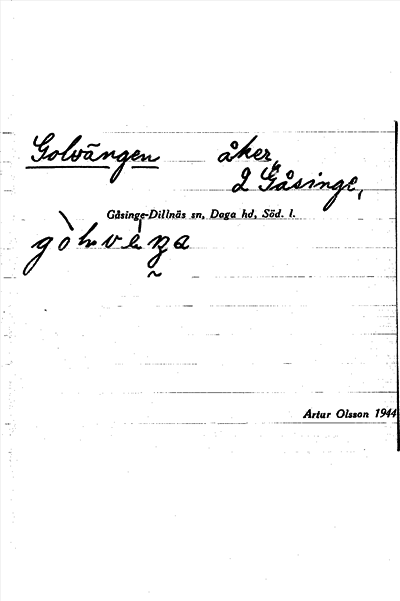 Golvängen åker,
2 Gåsinge,
Gåsinge-Dillnäs sn, Daga hd, Söd. l.
Artur Olsson 1944